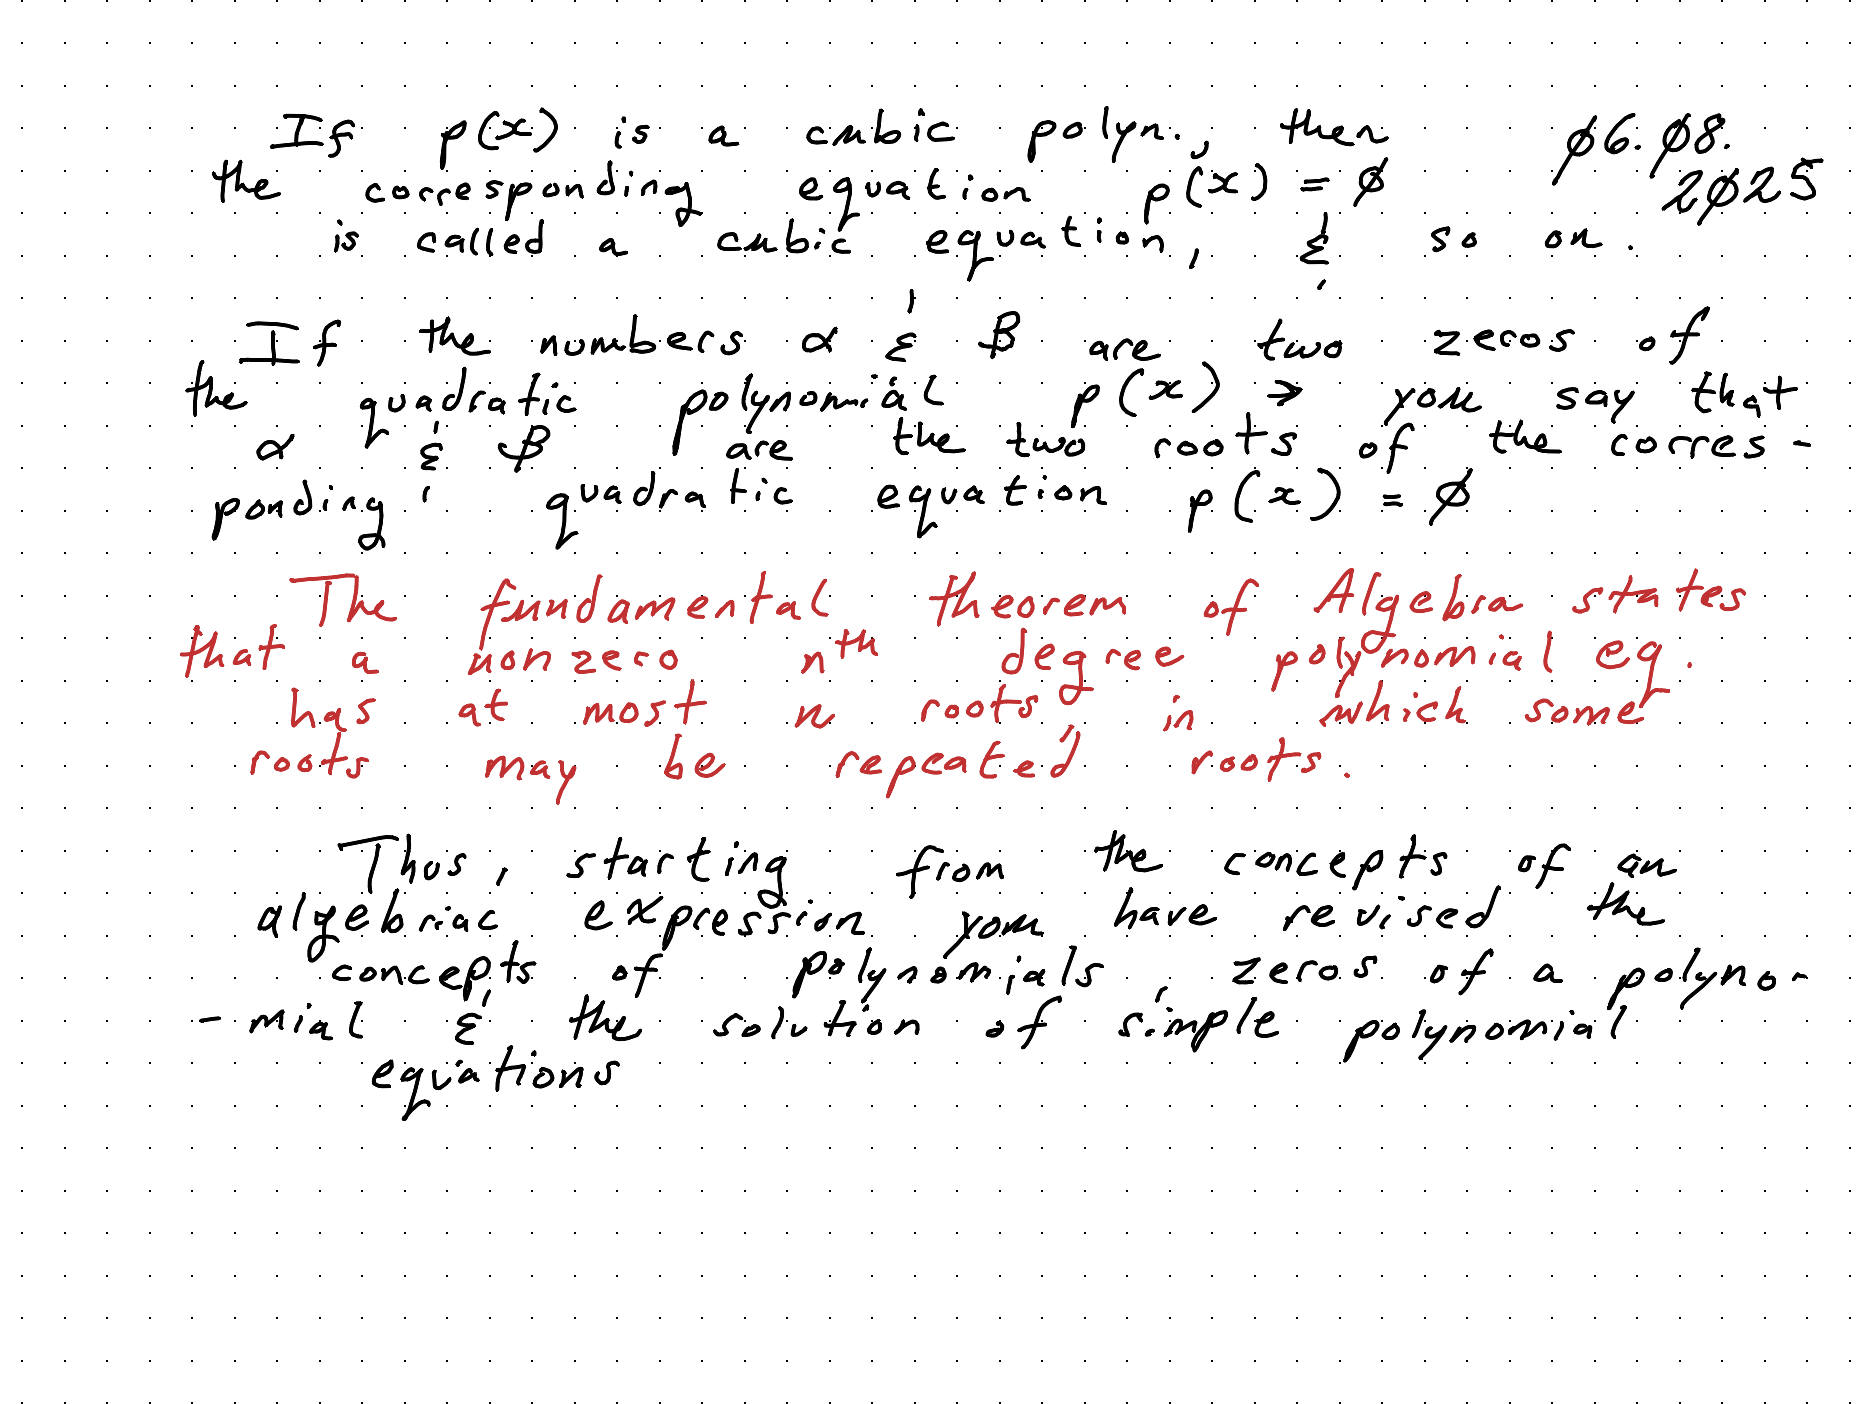 If p(x) is a cubic polyn., then
the corresponding equation p(x) = ∅
is called a cubic equation, & so on.
Ø6.Ø8.
2Ø25
If the numbers α & β are two zeros of
the quadratic polynomial p(x) → you say that
α & β are the two roots of the corres-
ponding quadratic equation p(x) = ∅
The fundamental theorem of Algebra states
that a nonzero nth degree polynomial eq.
has at most n roots, in which some
roots may be repeated roots.
Thus, starting from the concepts of an
algebriac expression you have revised the
concepts of polynomials, zeros of a polyno-
-mial & the solution of simple polynomial
equations